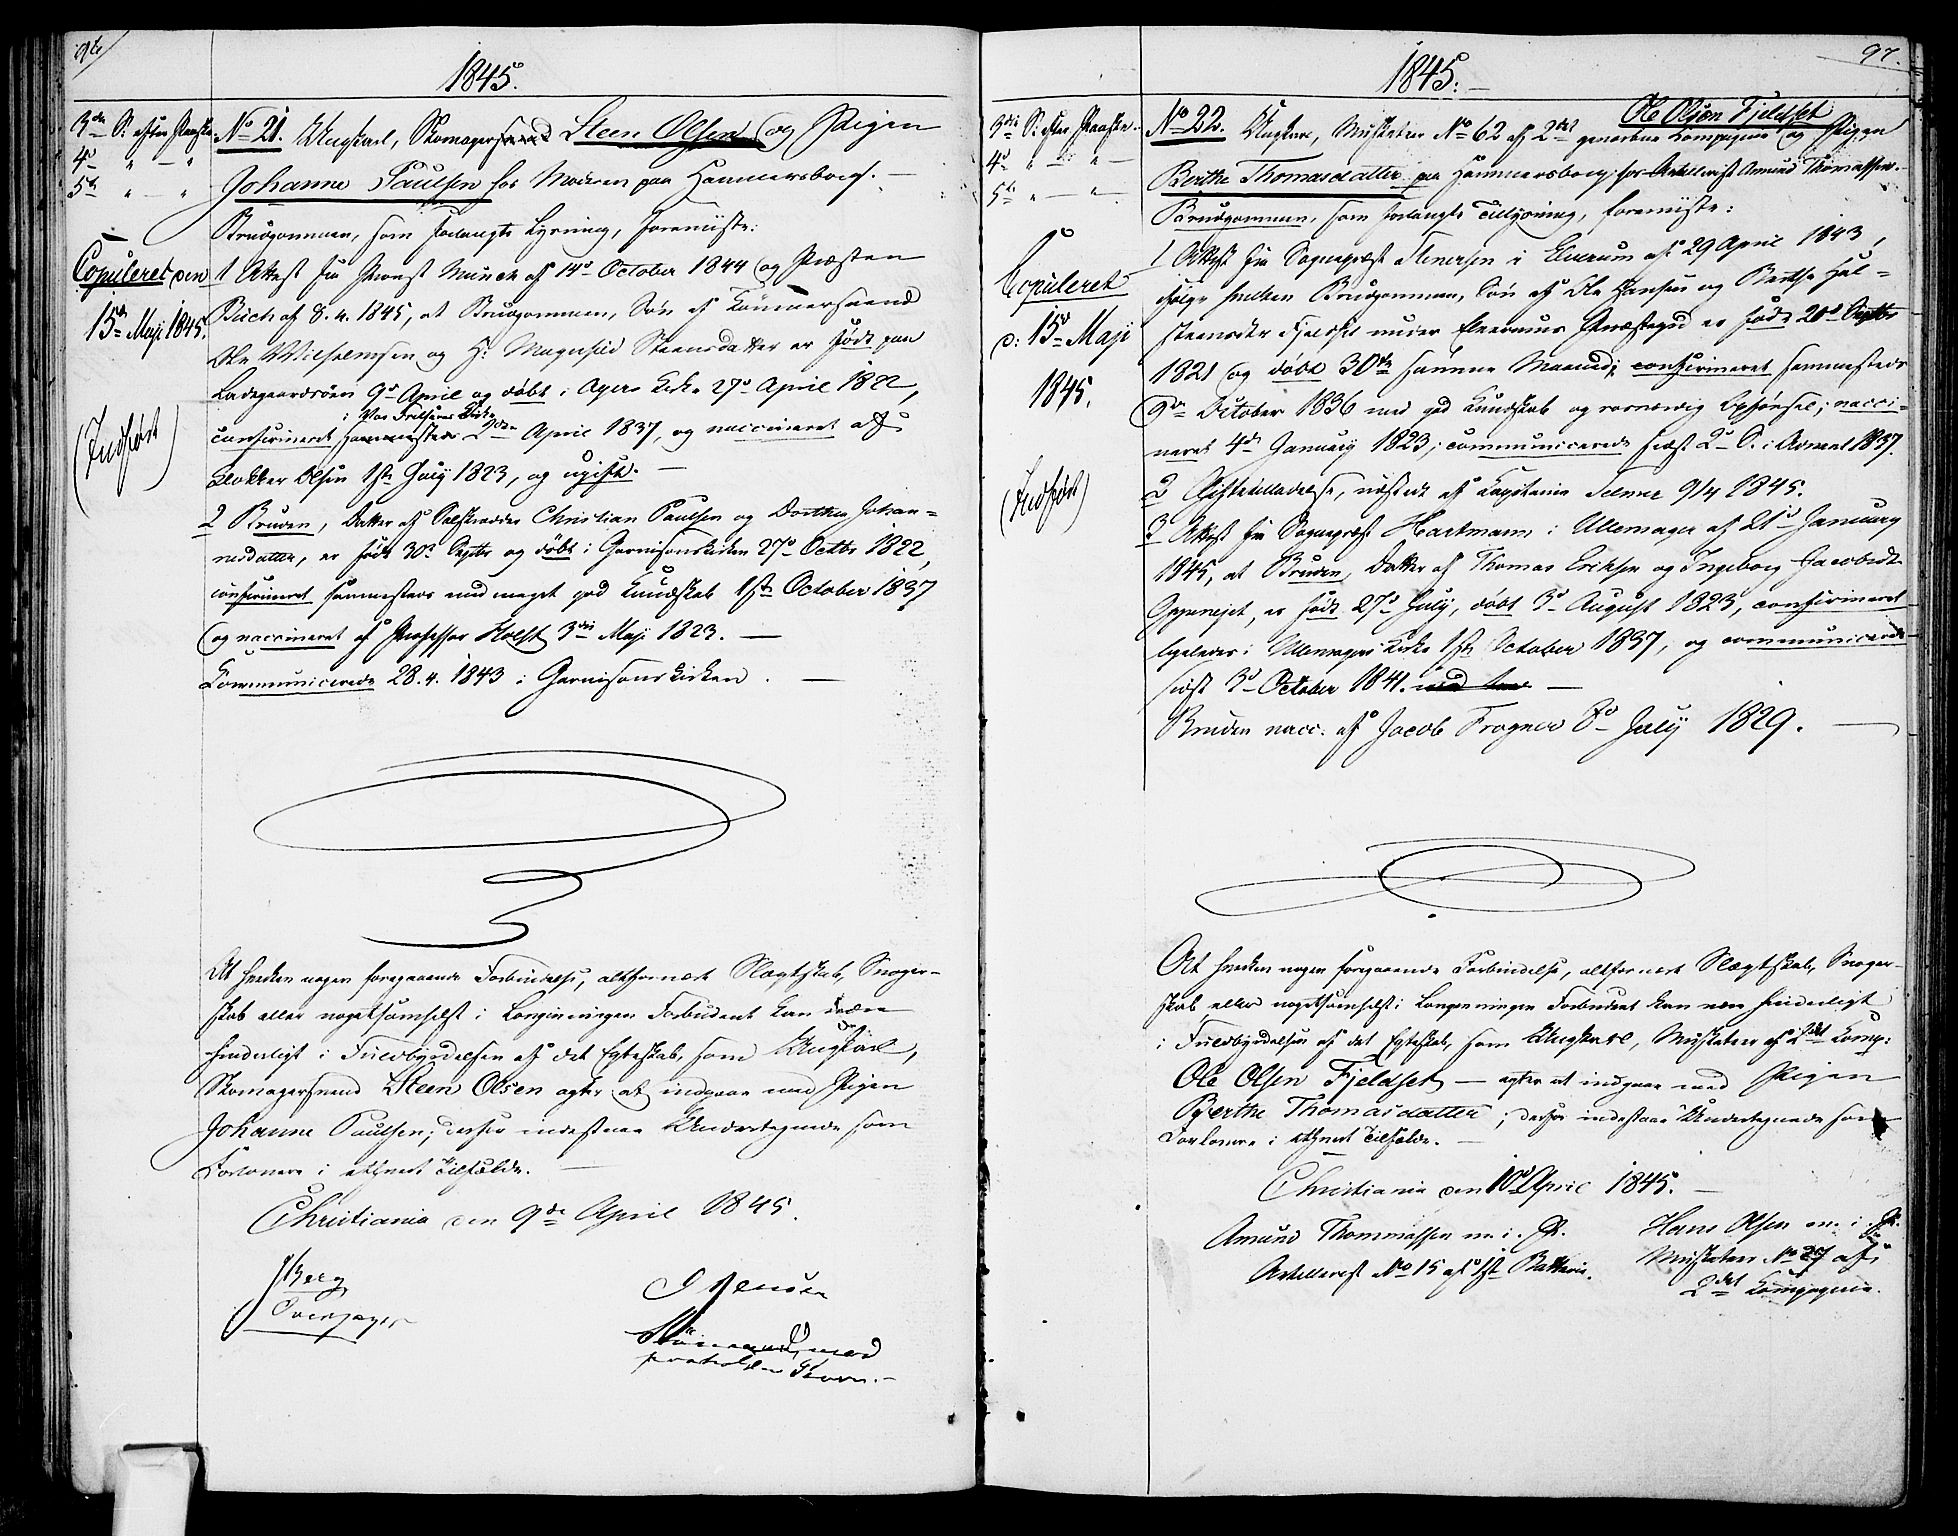 96
1845.
3de S. efter Paaske.
4de " — "
5te " — "
Copuleret den
15de Maji 1845.
(Indført)
No 21. Ungkarl, Skomagersvend Steen Olsen og Pigen
Johanne Paulsen hos Moderen paa Hammersborg. —
Brudgommen, som forlangte Lysning, foreviiste:
1 Attest fra Provst Münch af 14de October 1844 og Præsten
Buch af 8. 4. 1845, at Brudgommen, Søn af Tømmersvend
Ole Wilhelmsen og H: Magnhild Steensdatter er født paa
Ladegaardsøen 9de April og døbt i Agers Kirke 27de April 1822,
i Vor Frelsers Kirke
confirmeret sammesteds 2den April 1837, og vaccineret af
Klokker Olsen 1ste July 1823, og ugift. —
2 Bruden, Datter af Christian Paulsen og Dorthea Johan-
nesdatter, er født 30te Septbr og døbt i Garnisonskirken 27de Octbr 1822,
confirmeret sammesteds med meget god Kundskab 1ste October 1837
og vaccineret af Professor Holst 3die Maji 1823. —
Communicerede 28. 4. 1843 i Garnisonskirken. —
At hverken nogen foregaaende Forbindelse, altfornært Slægtskab, Svoger-
skab eller nogetsomhelst i Lovgivningen Forbudent kan være
hinderligt i Fuldbyrdelsen af det Egteskab, som Ungkarl,
Skomagersvend Steen Olsen agter at indgaae med Pigen
Johanne Paulsen; derfor indestaae Undertegnede som
Forlovere i ethvert Tilfælde. —
Christiania den 9de April 1845.
Berg
J Jensen
med
paaholden Pen. —
97.
1845. —
3die S. efter Paaske. —
4de " — " —
5te " — " —
Copuleret
d: 15de Maji
1845.
(Indført)
Ole Olsen Fjeldset
No 22. Ungkarl, Musketeer No 62 af 2det gevorbne Kompagnie og Pigen
Berthe Thomasdatter paa Hammersborg hos Artillerist Amund Thomassen. —
Brudgommen, som forlangte Tillysning, foreviiste:
1 Attest fra Sognepræst Stenersen i Elverum af 29 April 1843,
ifølge hvilken Brudgommen, Søn af Ole Hansen og Berthe Hal-
steensdtr Fjeldset under Elverums Præstegjd er født 20de Septbr
1821 og døbt 30te samme Maaned; confirmeret sammesteds
9de October 1836 med god Kundskab og roesværdig Opførsel; vacci-
neret 4de January 1823; communicerede sidst 2den S. i Advent 1837.
2 Giftetilladelse, udstedt af Kapitaine Selmer 9/4 1845.
3 Attest fra Sognepræst Hartmann i Ullensager af 21de January
1845, at Bruden, Datter af Thomas Eriksen og Ingeborg Jacobsdtr
Opperejet, er født 27de July, døbt 3de August 1823, confirmeret
ligeledes i Ullensagers Kirke 1ste October 1837, og communicerede
sidst 3de October 1841. —
Bruden vacc. af Jacob Frogner 8de July 1829. —
At hverken nogen foregaaende Forbindelse, altfornært Slægtskab, Svoger-
skab eller nogetsomhelst i Lovgivningen Forbudent kan være hinderligt
i Fuldbyrdelsen af det Egteskab, som Ungkarl, Musketeer af 2det Komp:
Ole Olsen Fjeldset — agter at indgaae med Pigen
Berthe Thomasdatter; derfor indestaae Undertegnede som
Forlovere i ethvert Tilfælde. —
Christiania den 10de April 1845. —
Amund Thommassen m. i. P.
Artillerist No 15 af 1ste Batterie.
Hans Olsen m. i. P.
Musketeer No 27 af
2det Kompagnie.